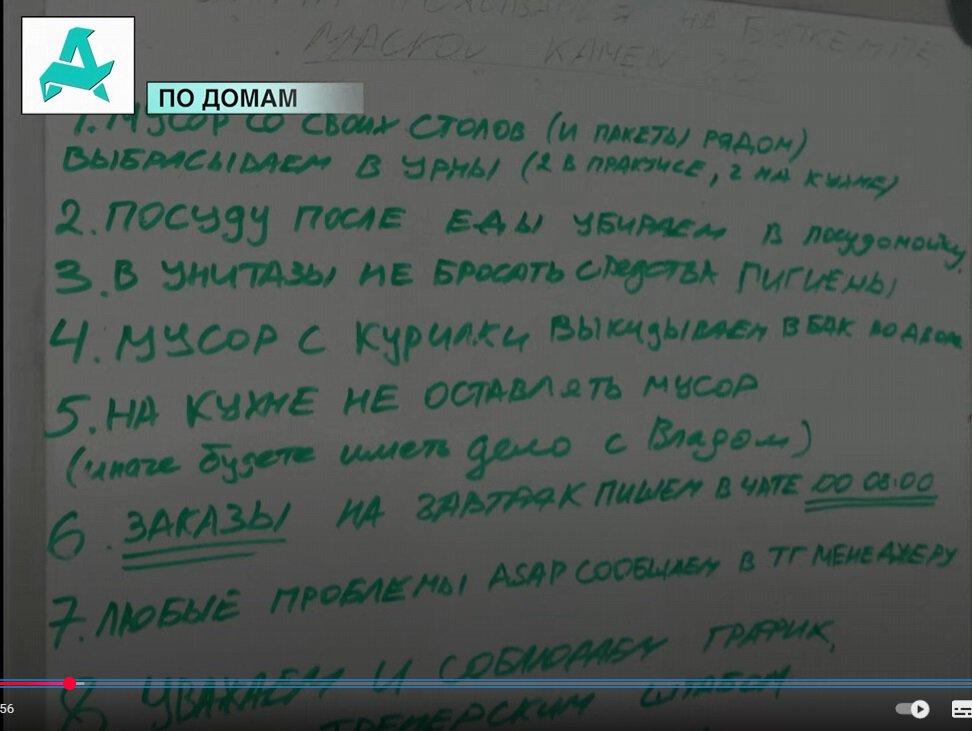 ПРОЖИВАНИЯ НА БУТКЕМПЕ
МАСКОЙ КАМЕН
ПО ДОМАМ
1. МУСОР СО СВОИХ СТОЛОВ (И ПАКЕТЫ РЯДОМ)
ВЫБРАСЫВАЕМ В УРНЫ (2 В ПРАКУИСЕ, 2 НА КУХНЕ)
2. ПОСУДУ ПОСЛЕ ЕДЫ УБИРАЕМ В посудомойку.
3. В УНИТАЗЫ НЕ БРОСАТЬ СРЕДСТВА ГИГИЕНЫ
4. МУСОР С КУРИЛКИ ВЫКИДЫВАЕМ В БАК ВО ДВОРЕ
5. НА КУХНЕ НЕ ОСТАВЛЯТЬ МУСОР
(иначе будете иметь дело с Владом)
6. ЗАКАЗЫ НА ЗАВТРАК ПИШЕМ В ЧАТЕ ДО 08:00
7. ЛЮБЫЕ ПРОБЛЕМЫ ASAP СООБЩАЕМ В ТГ МЕНЕДЖЕРУ
8. УВАЖАЕМ И СОБЛЮДАЕМ ГРАФИК,
ТРЕНЕРСКИМ ШТАБОМ
56